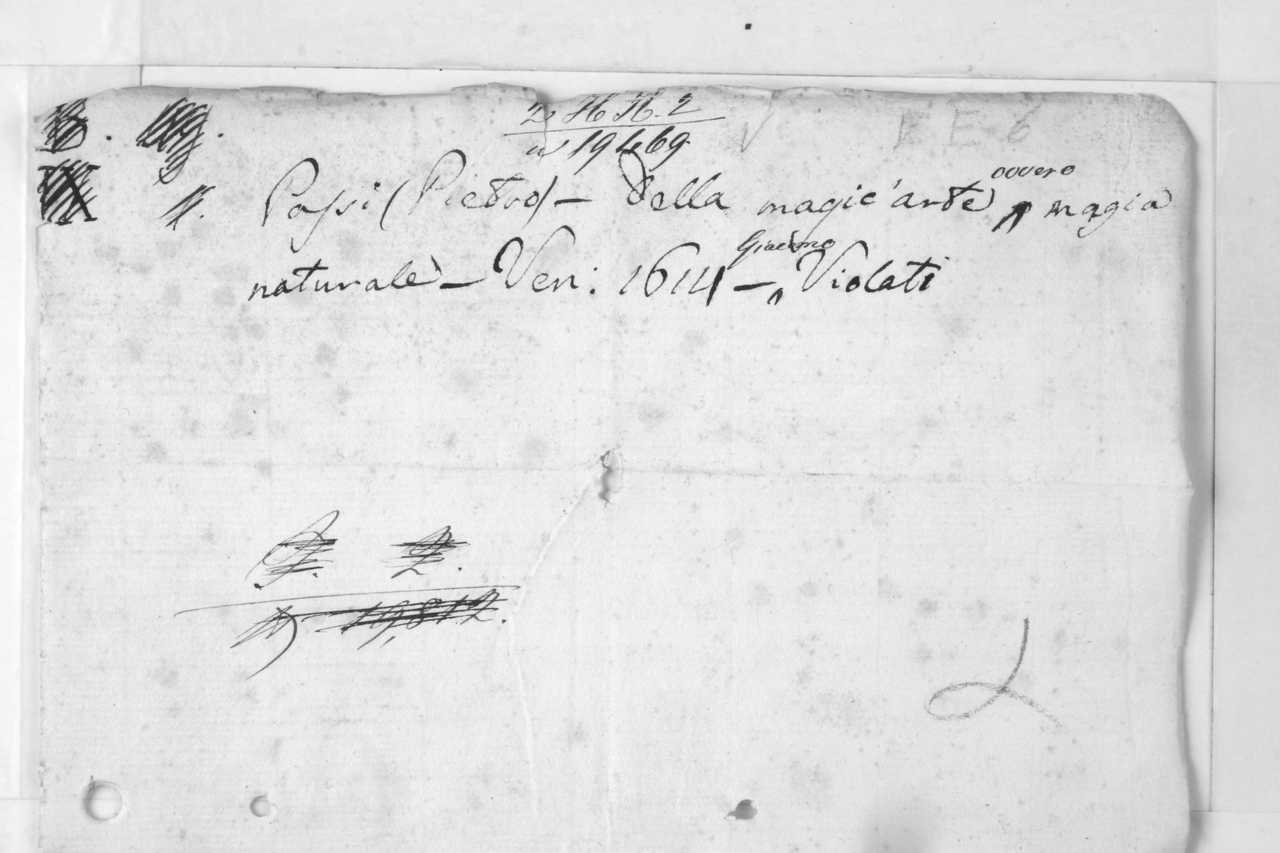 2 H H. 2
19469
4.
Passi (Pietro) – Della magic'arte ovvero magia
naturale – Ven: 1614 – Giacomo Violati
19,812.